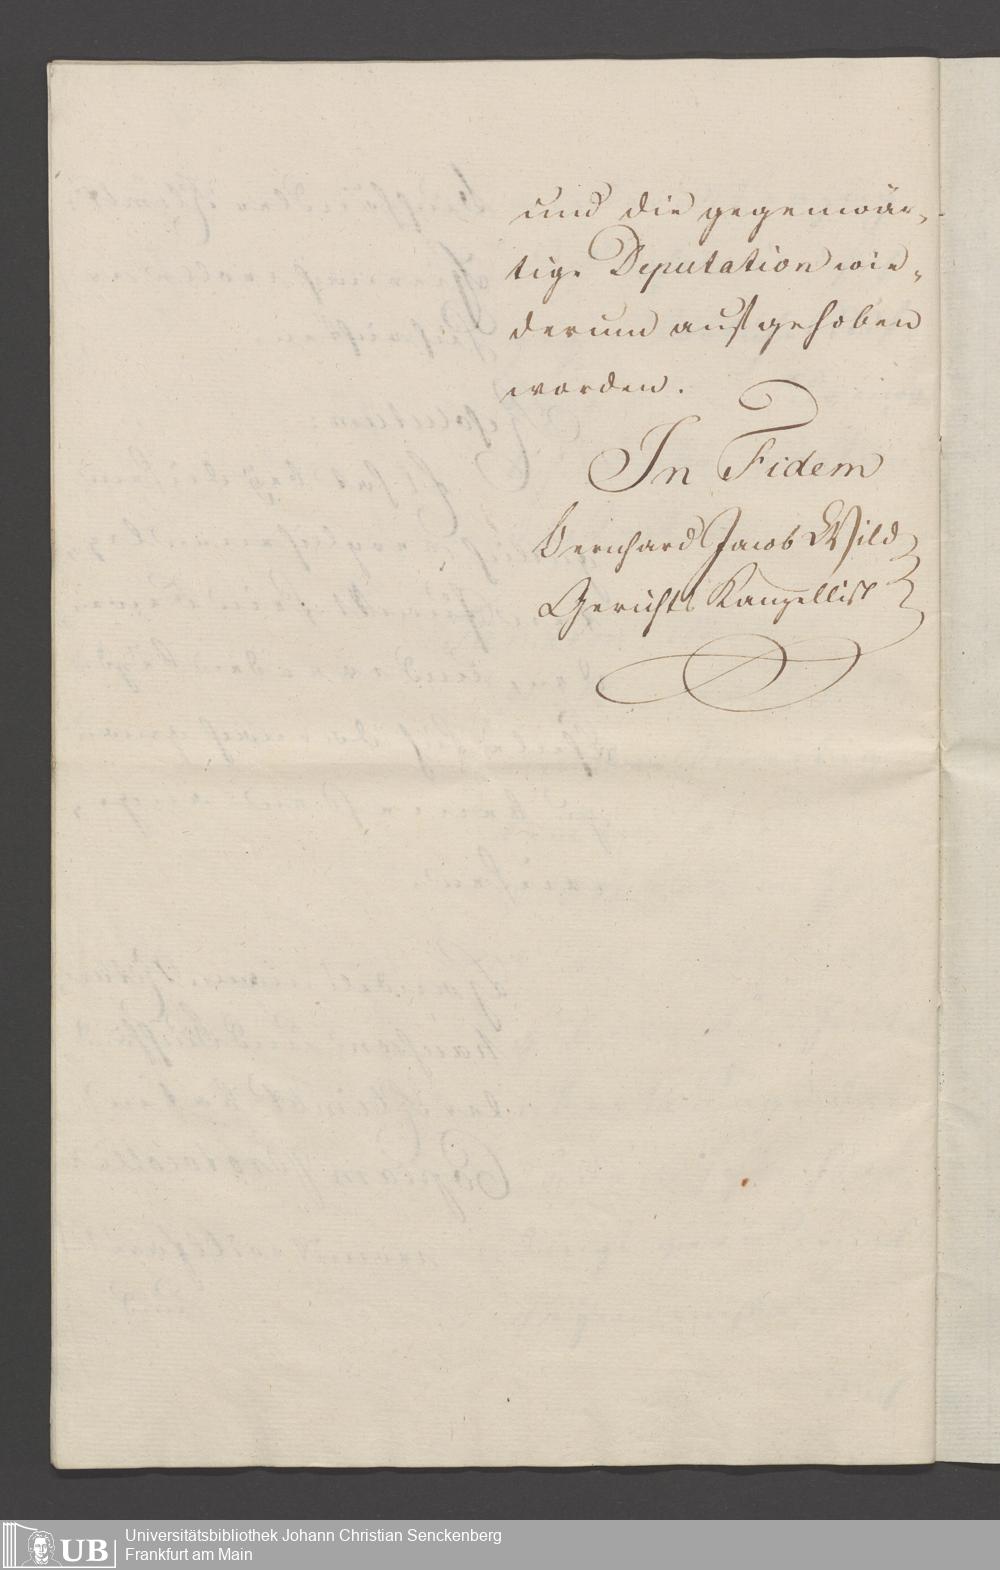 und die gegenwär-
tige Deputation wie-
derum aufgehoben
worden.
In Fidem
Bernhard Jacob Wild
Gerichts Kanzellist
UB
Universitätsbibliothek Johann Christian Senckenberg
Frankfurt am Main